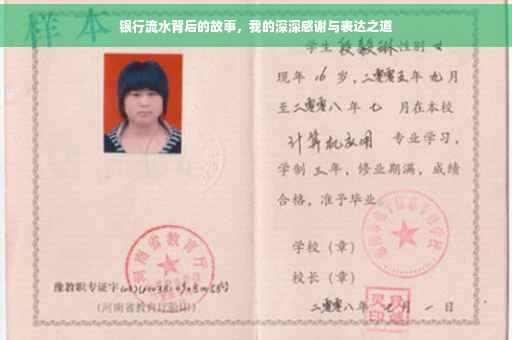 银行流水背后的故事，我的深深感谢与表达之道
样本
学生段毅琳性别女
现年 16 岁，二零零五年九月
至二零零八年七月在本校
计算机应用 专业学习，
学制三年，修业期满，成绩
合格，准予毕业。
学校（章）
校长（章）
二零零八年七月一日
河南省教育厅
豫教职专证字
（河南省教育厅验印）